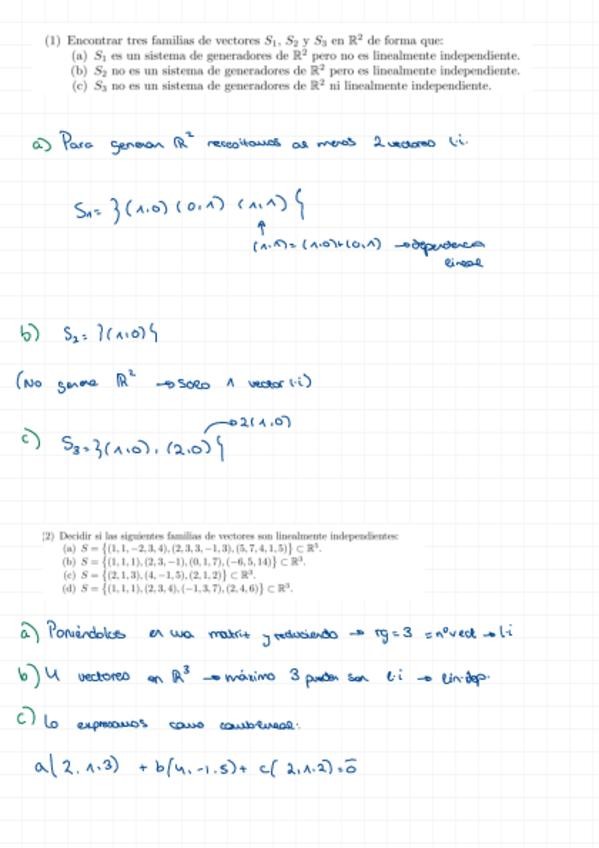 (1) Encontrar tres familias de vectores S₁, S₂ y S₃ en ℝ² de forma que:
(a) S₁ es un sistema de generadores de ℝ² pero no es linealmente independiente.
(b) S₂ no es un sistema de generadores de ℝ² pero es linealmente independiente.
(c) S₃ no es un sistema de generadores de ℝ² ni linealmente independiente.
a) Para generar ℝ² necesitamos al menos 2 vectores l.i.
S₁= }(1,0) (0,1) (1,1){
↑
(1,1)=(1,0)+(0,1) → dependencia
lineal
b) S₂= }(1,0){
(No genera ℝ² → Solo 1 vector l.i)
→2(1,0)
c) S₃= }(1,0), (2,0){
(2) Decidir si las siguientes familias de vectores son linealmente independientes:
(a) S = {(1,1,−2,3,4),(2,3,3,−1,3),(5,7,4,1,5)} ⊂ ℝ⁵.
(b) S = {(1,1,1),(2,3,−1),(0,1,7),(−6,5,14)} ⊂ ℝ³.
(c) S = {(2,1,3),(4,−1,5),(2,1,2)} ⊂ ℝ³.
(d) S = {(1,1,1),(2,3,4),(−1,3,7),(2,4,6)} ⊂ ℝ³.
a) Poniéndolos en una matriz y reduciendo → rg=3 = nº vect → l.i
b) 4 vectores en ℝ³ → máximo 3 pueden ser l.i → lin.dep.
c) Lo expresamos como comb.lineal:
a(2,1,3) + b(4,-1,5)+ c(2,1,2)=0̄